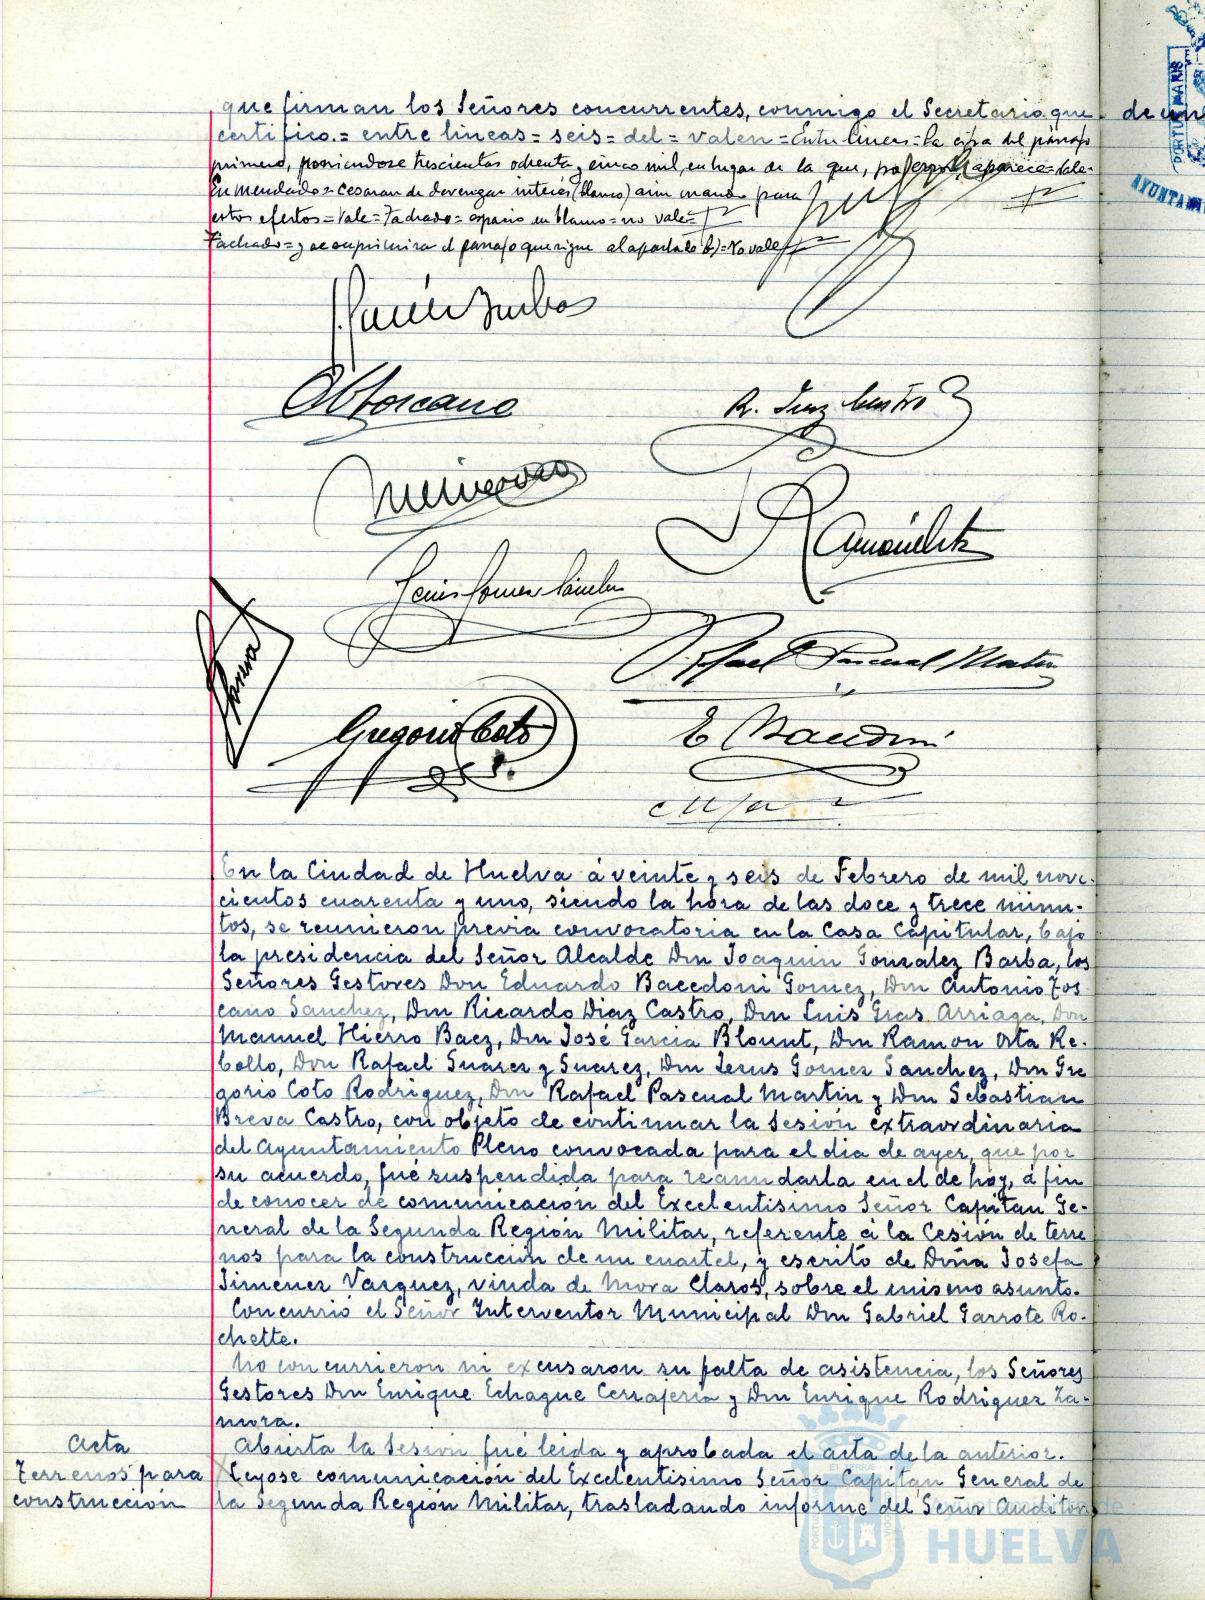 que firman los Señores concurrentes, conmigo el Secretario que
certifico.= entre lineas= seis= del= valen =Entre lineas= la cifra del párrafo
primero, poniendose trescientas ochenta y cinco mil, en lugar de la que, por error, aparece= Vale=
Enmendado= cesaran de devengar interés (blanco) aim cuando para
estos efectos= Vale= Tachado= espacio en blanco= no vale=
Tachado= y se suprimirá el parrafo que sigue al apartado b)= No vale
R. Diaz Castro
Jesus Gomez Sanchez
Rafael Pascual Martin
Gregorio Coto
E Bacedoni
En la Ciudad de Huelva á veinte y seis de Febrero de mil nove-
cientos cuarenta y uno, siendo la hora de las doce y trece minu-
tos, se reunieron previa convocatoria en la Casa Capitular, bajo
la presidencia del Señor Alcalde Don Joaquin Gonzalez Barba, los
Señores Gestores Don Eduardo Bacedoni Gomez, Don Antonio Tos
cano Sanchez, Don Ricardo Diaz Castro, Don Luis Gras Arriaga, Don
Manuel Hierro Baez, Don José Garcia Blount, Don Ramon Orta Re-
bollo, Don Rafael Suarez y Suarez, Don Jesus Gomez Sanchez, Don Gre
gorio Coto Rodriguez, Don Rafael Pascual Martin y Don Sebastian
Breva Castro, con objeto de continuar la Sesión extraordinaria
del Ayuntamiento Pleno convocada para el dia de ayer, que por
su acuerdo, fué suspendida para reanudarla en el de hoy, á fin
de conocer de comunicación del Excelentisimo Señor Capitan Ge-
neral de la Segunda Región Militar, referente á la Cesión de terre
nos para la construcción de un cuartel, y escrito de Doña Josefa
Jimenez Vazquez, viuda de Mora Claros, sobre el mismo asunto.
Concurrió el Señor Interventor Municipal Don Gabriel Garrote Ro-
chette.
No concurrieron ni excusaron su falta de asistencia, los Señores
Gestores Don Enrique Echague Cerrajeria y Don Enrique Rodriguez Za-
mora.
Acta
Abierta la Sesión fué leida y aprobada el acta de la anterior.
Terrenos para
construcción
Leyose comunicación del Excelentisimo Señor Capitan General de
la Segunda Región Militar, trasladando informe del Señor Auditor
HUELVA